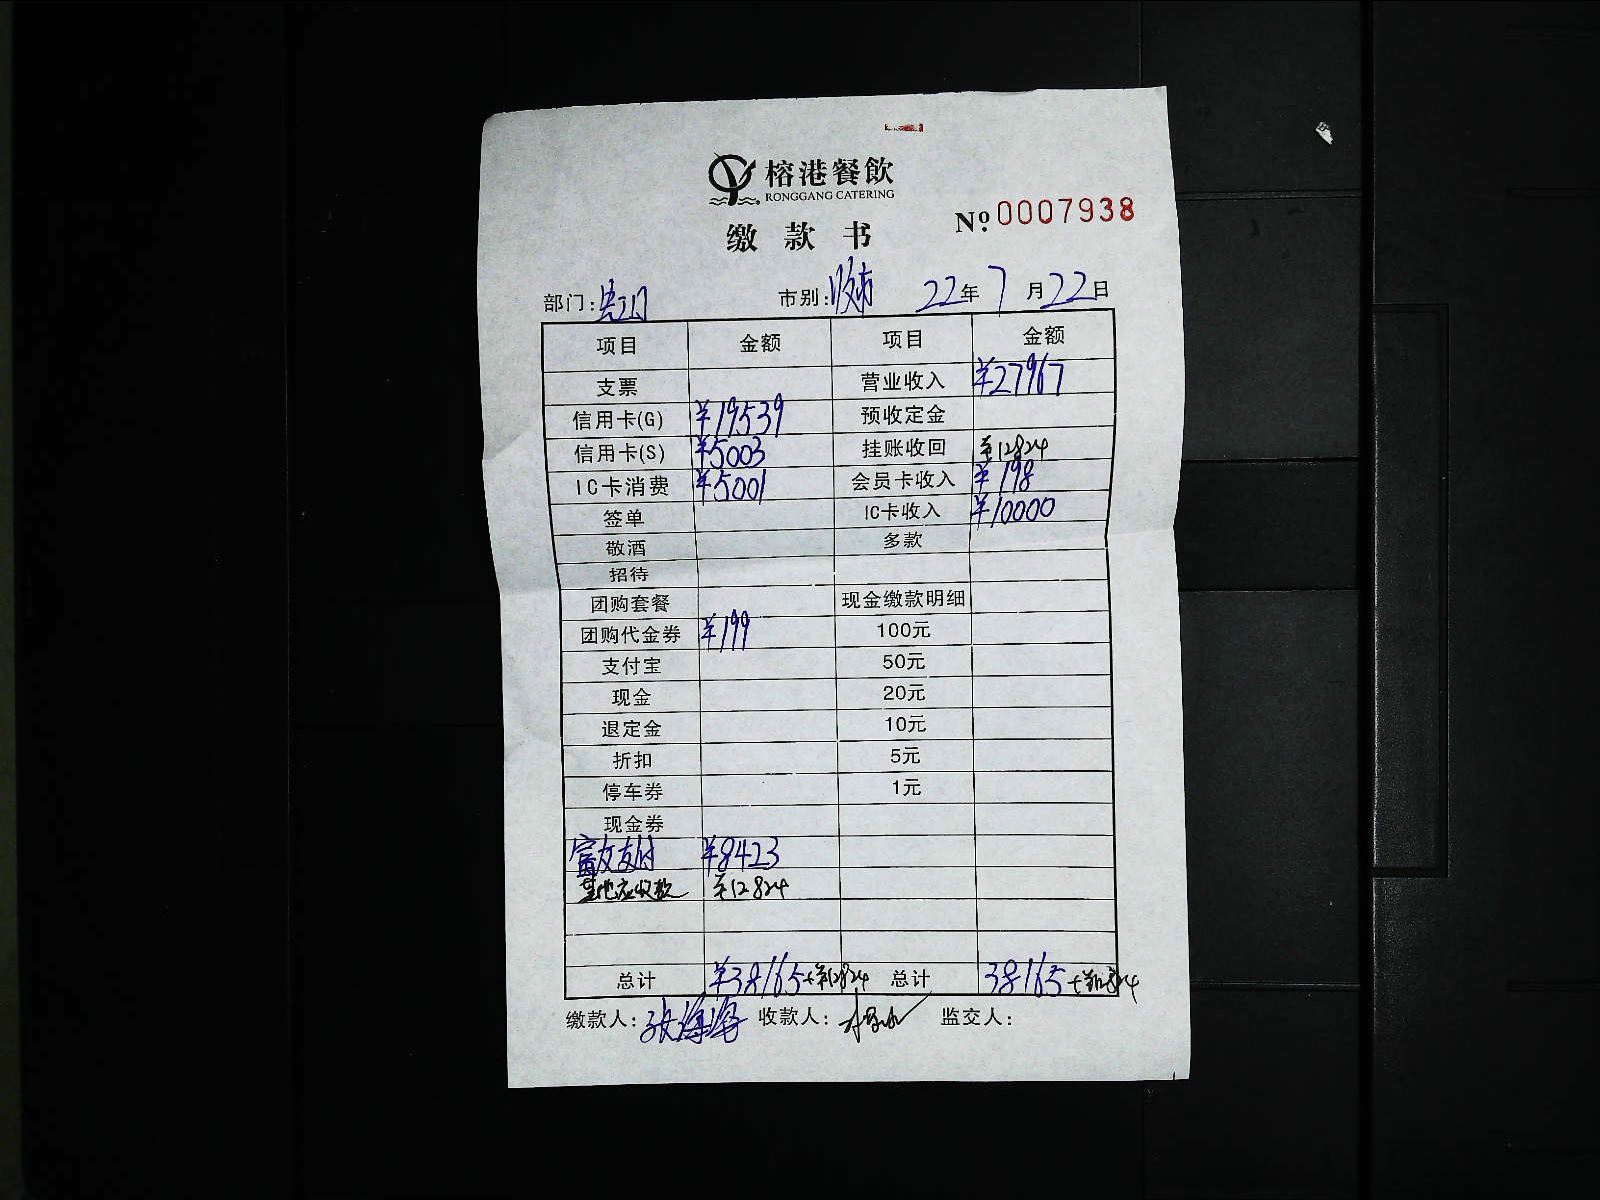 榕港餐飲
RONGGANG CATERING
缴款书
№ 0007938
部门: 市别: 夜市 22年7月22日
项目 金额 项目 金额
支票 营业收入 ¥27967
信用卡(G) ¥19539 预收定金
信用卡(S) ¥5003 挂账收回 ¥12824
IC卡消费 ¥5001 会员卡收入 ¥198
签单 IC卡收入 ¥10000
敬酒 多款
招待
团购套餐 现金缴款明细
团购代金券 ¥199 100元
支付宝 50元
现金 20元
退定金 10元
折扣 5元
停车券 1元
现金券
富友支付 ¥8423
其他应收款 ¥12824
总计 ¥38165+¥12824 总计 38165+¥12824
缴款人: 收款人: 监交人: